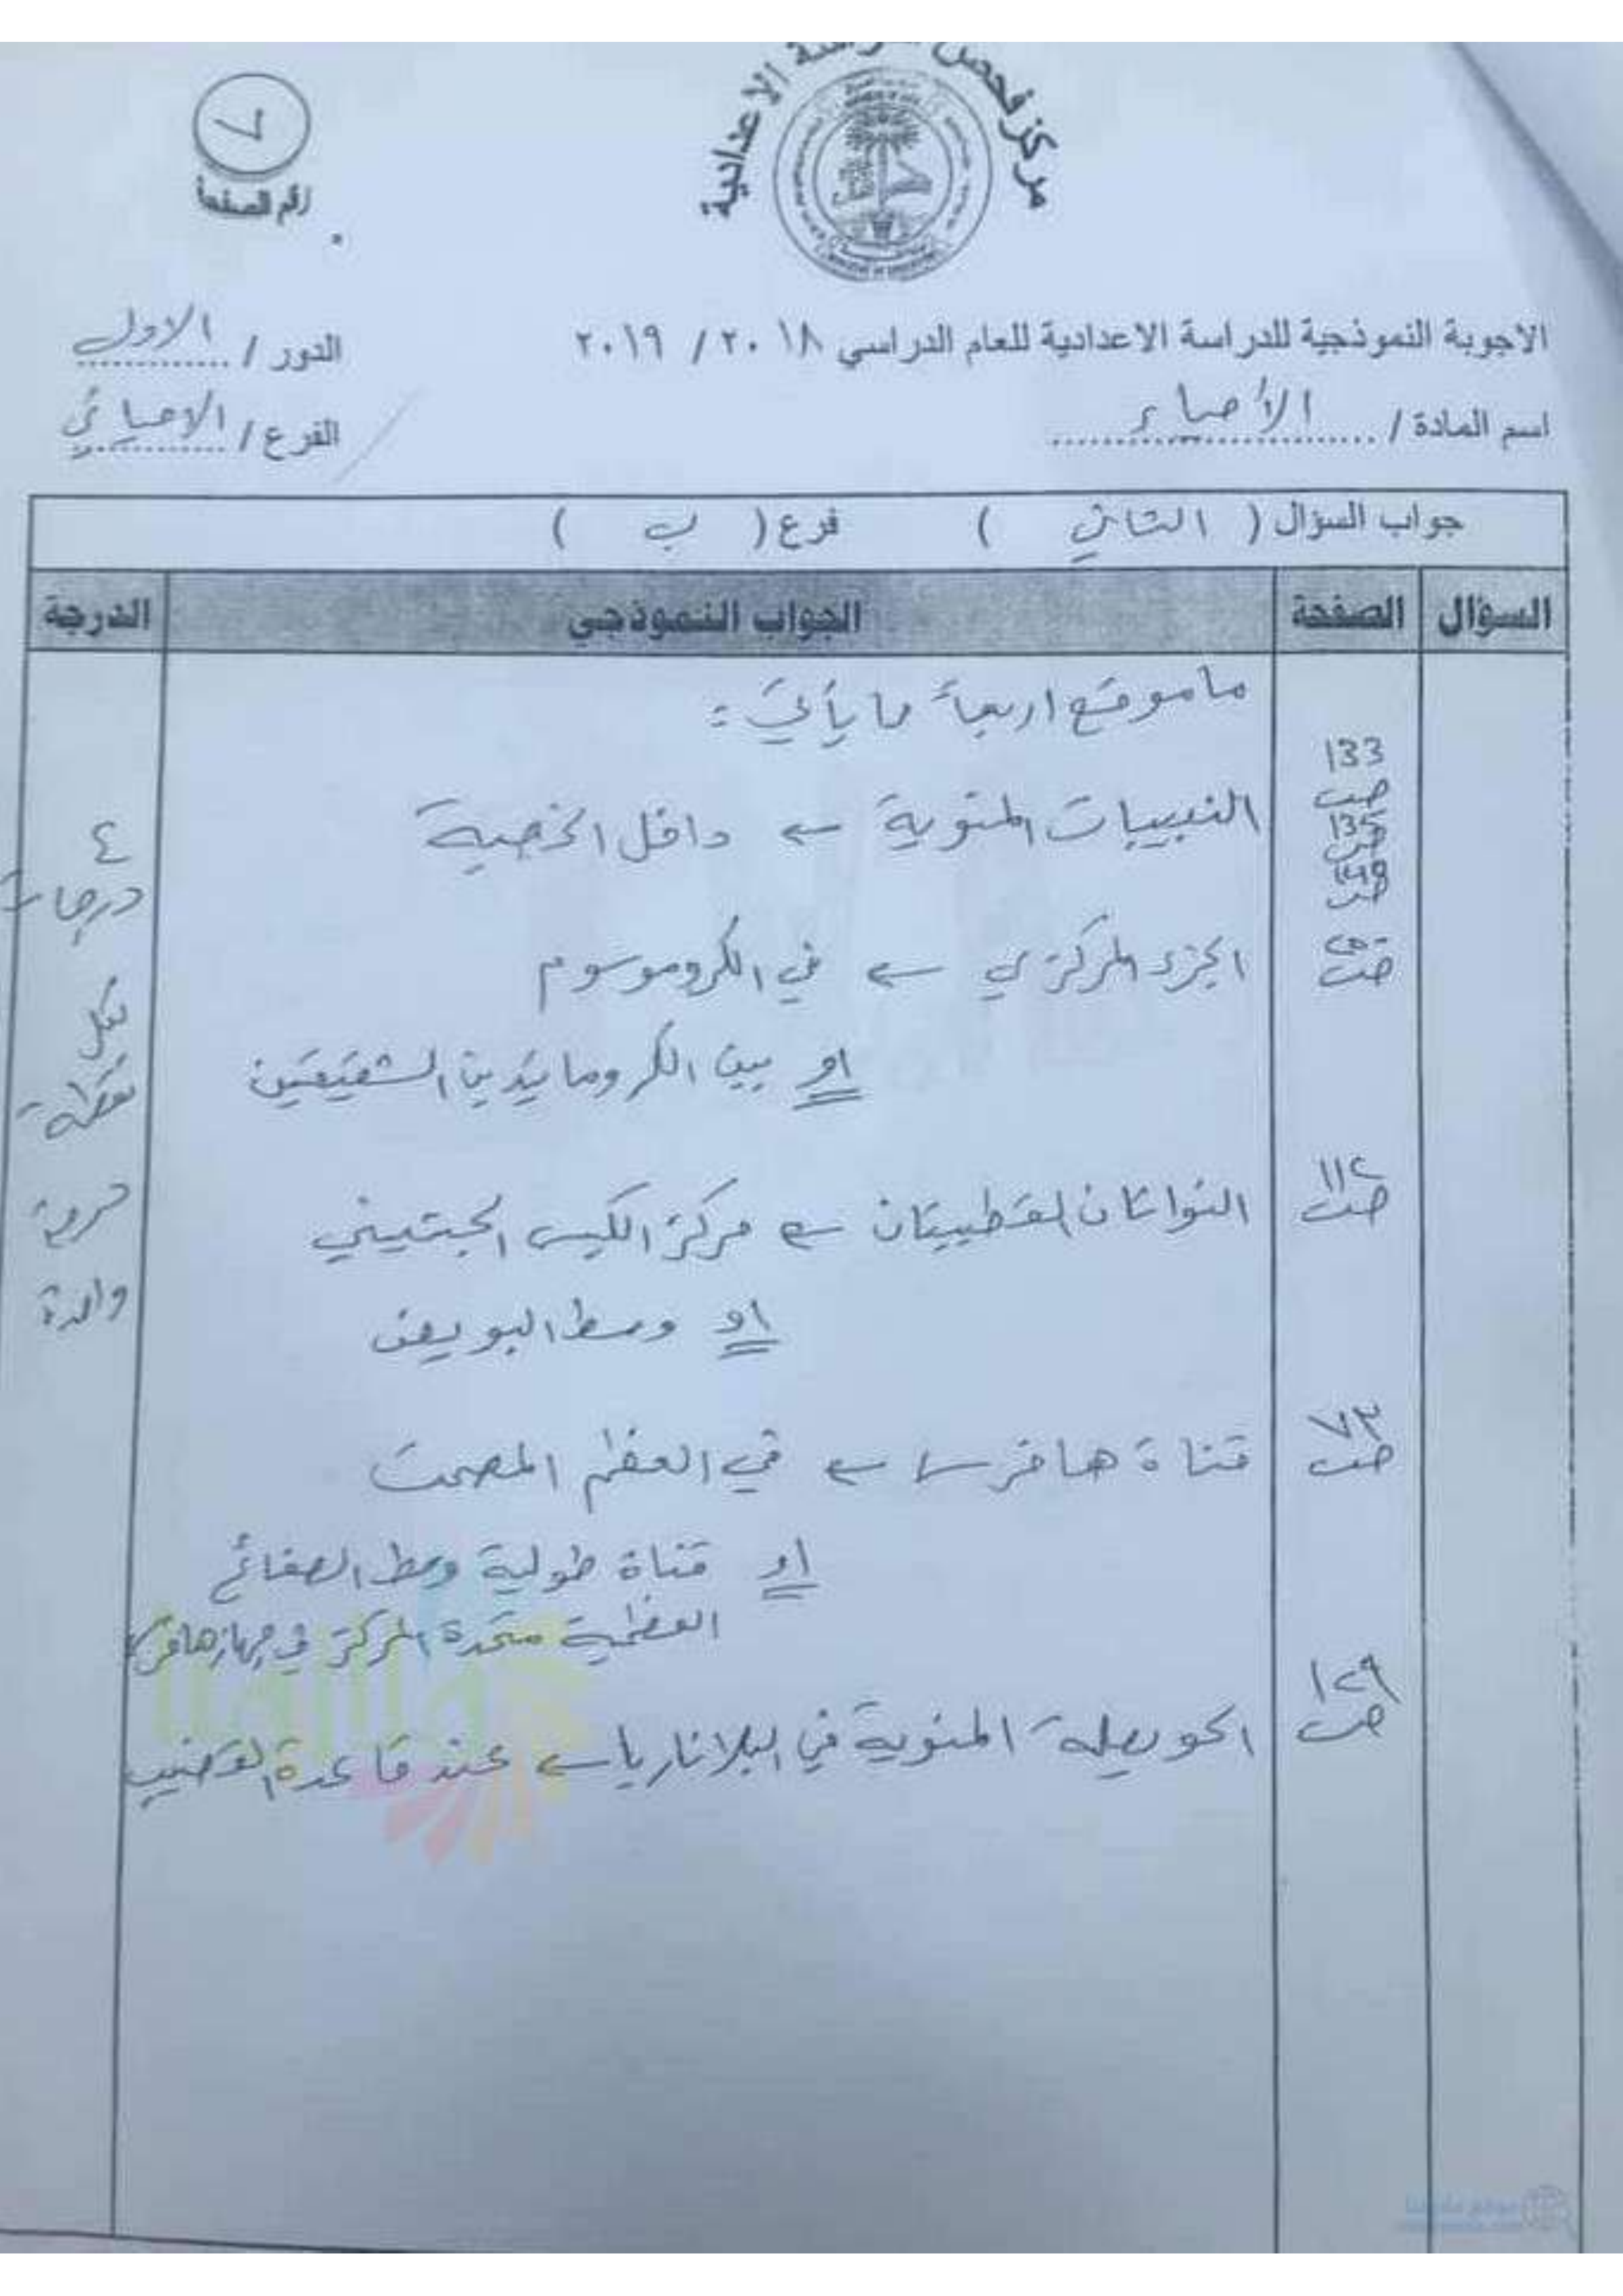 مركز فحص الدراسة الاعدادية
٧
رقم الصفحة
الاجوبة النموذجية للدراسة الاعدادية للعام الدراسي ٢٠١٨ / ٢٠١٩
الدور / الاول
اسم المادة / الأحياء
الفرع / الاحيائي
جواب السؤال ( الثاني ) فرع ( ب )
السؤال الصفحة الجواب النموذجي الدرجة
ما موقع اربعاً مما يأتي :
133 ص
النبيبات المنوية ← داخل الخصية
135 ص
149 ص
٤ درجات
الجزء المركزي ← في الكروموسوم
او بين الكروماتيدين الشقيقين
لكل نقطة درجة واحدة
١١٢ ص
النواتان القطبيتان ← مركز الكيس الجنيني
او وسط البويض
٧٣ ص
قناة هافرس ← في العظم المصمت
او قناة طولية وسط الصفائح
العظمية متحدة المركز في جهاز هافرس
١٢٩ ص
الحويصلة المنوية في البلاناريا ← عند قاعدة القضيب
موقع ملازمنا